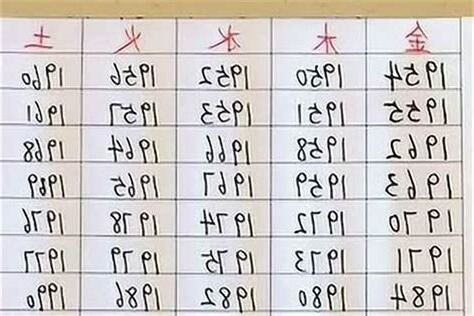 金 木 水 火 土
1954 1950 1952 1956 1960
1955 1951 1953 1957 1961
1962 1958 1966 1964 1968
1963 1959 1967 1965 1969
1970 1972 1974 1978 1976
1971 1973 1975 1979 1977
1984 1980 1982 1986 1990